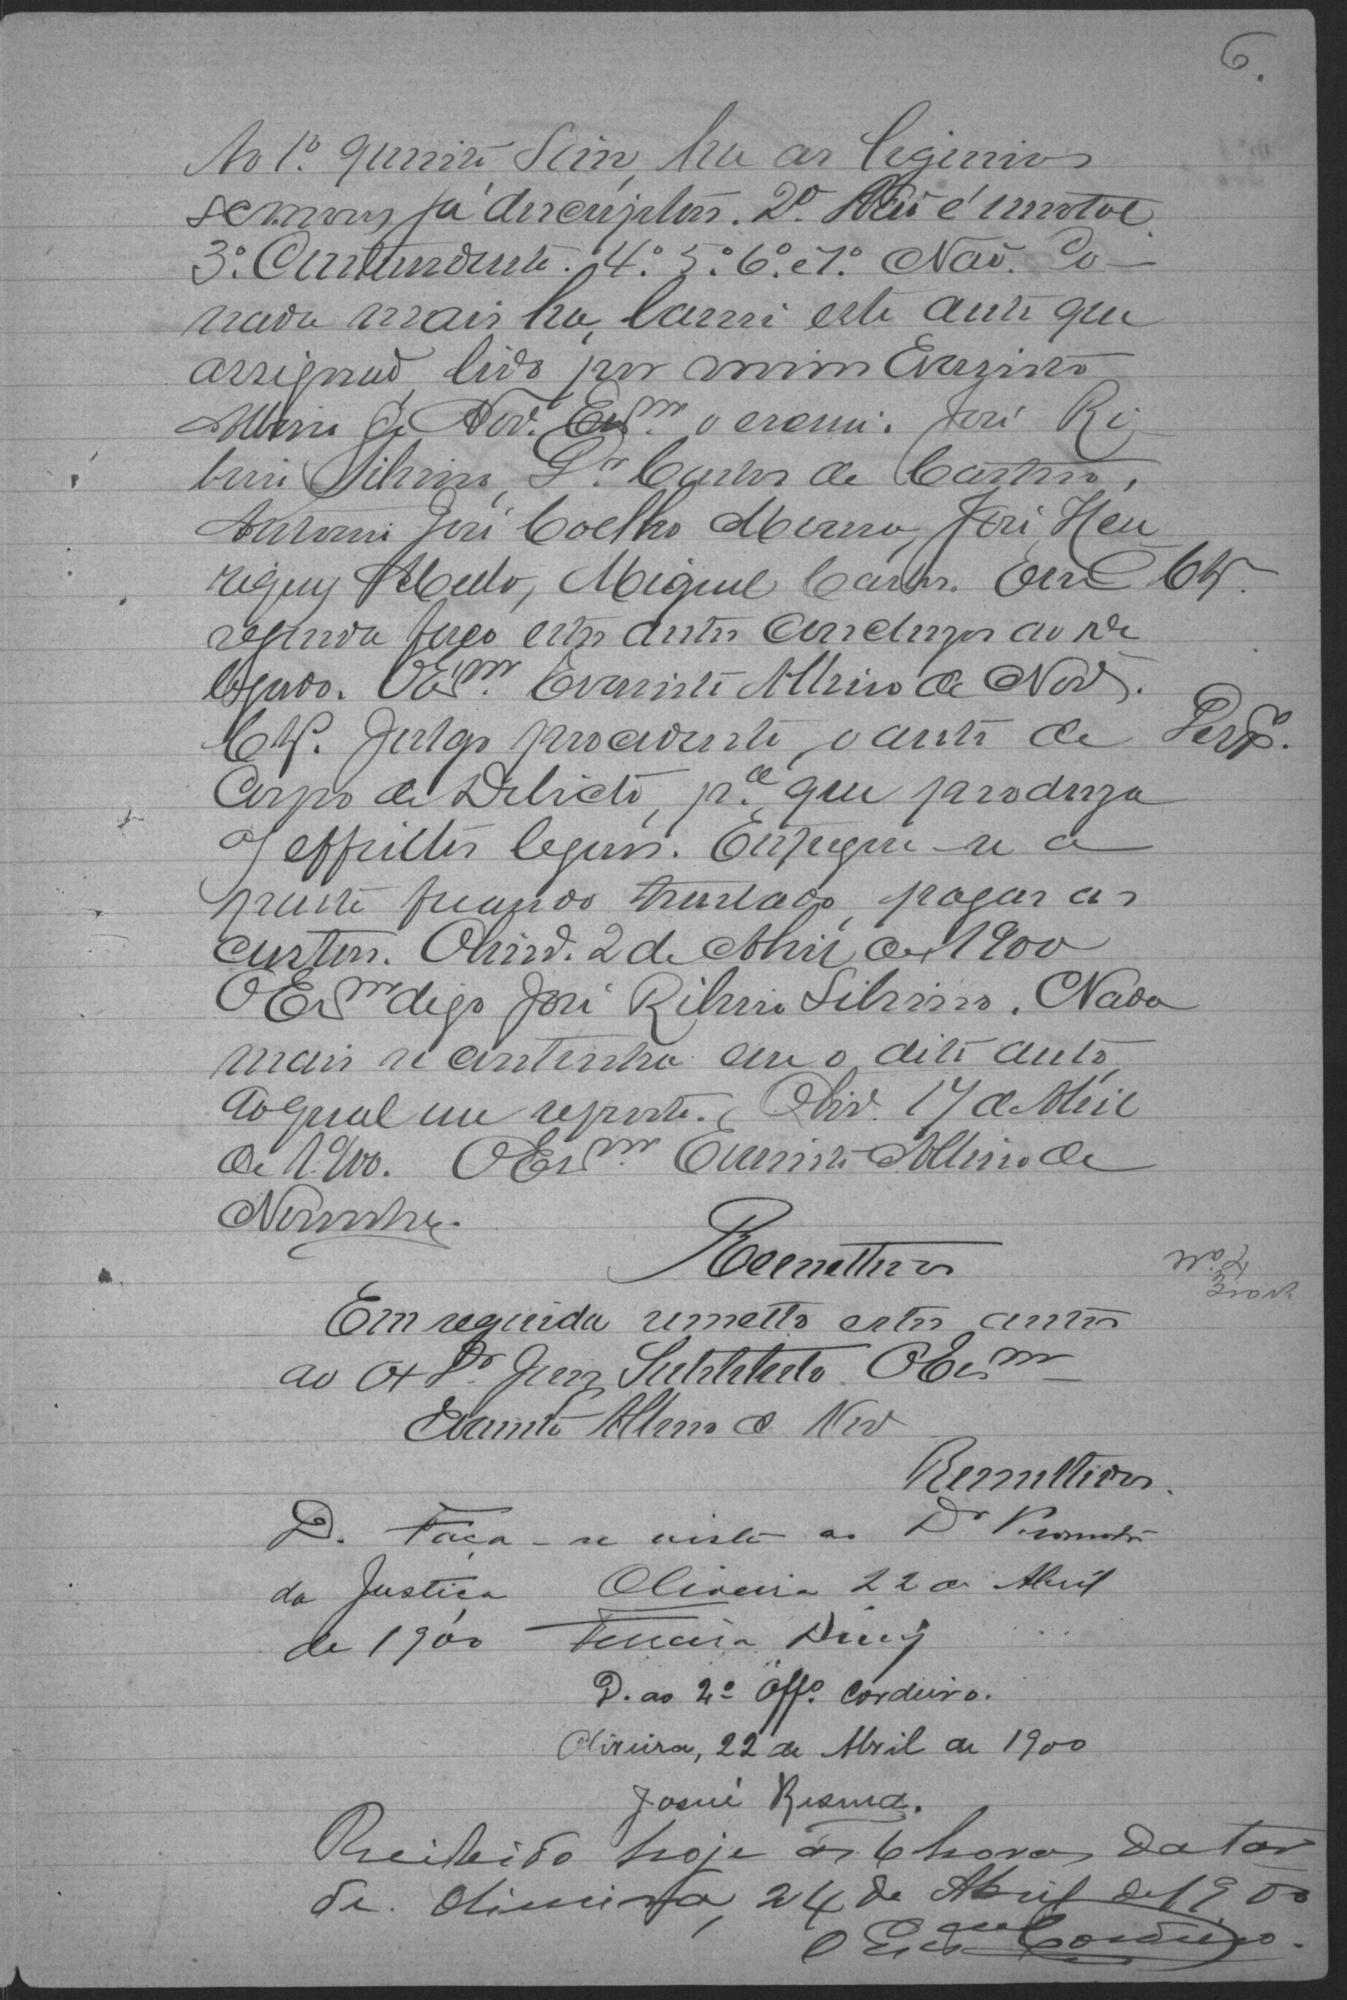 6.
Ao 1º. quisito Sim, ha as
já descriptas. 2º. Não é mortal.
3º. Contundente. 4º. 5º. 6º. e 7º. Não. Co-
nada mais ha, lavrei este auto que
assignad lido por mim Evaristo
Albino de Nov.ª Escr.m o escrevi. José Ri-
beiro Silvino, Dr. Carlos de Castro,
Antonio José Coelho Moura, José Hen
riques Mello, Miguel Carlos. Em Cls.
seguida faço estes autos conclusos ao De
legado. O Escr.m Evaristo Albino de Nov.
Cls. Julgo procedente o auto de
Corpo de Delicto, p.ª que produza
os effeitos legaes. Entregue-se a
parte ficando traslado, pagas as
custas. Oliv.ª 2 de Abril de 1900
O Escr.m digo José Ribeiro Silvino. Nada
mais se continha em o dito auto,
ao qual me reporto. Oliv. 17 de Abril
de 1900. O Escr.m Evaristo Albino de
Noronha.
Remettidos
Em seguida remetto estes autos
ao Dr. Juiz Substituto. O Escr.m
Evaristo Albino de Nor
Remettidos.
D. Faça-se vista ao Dr Promotor
da Justiça Oliveira 22 de Abril
de 1900 Ferreira Diniz
D. ao 2º Offº. Cordeiro.
Oliveira, 22 de Abril de 1900
Josué
Recebido hoje as 6 horas da tar
de. Oliveira, 24 de Abril de 1900
O Escr.am Cordeiro.